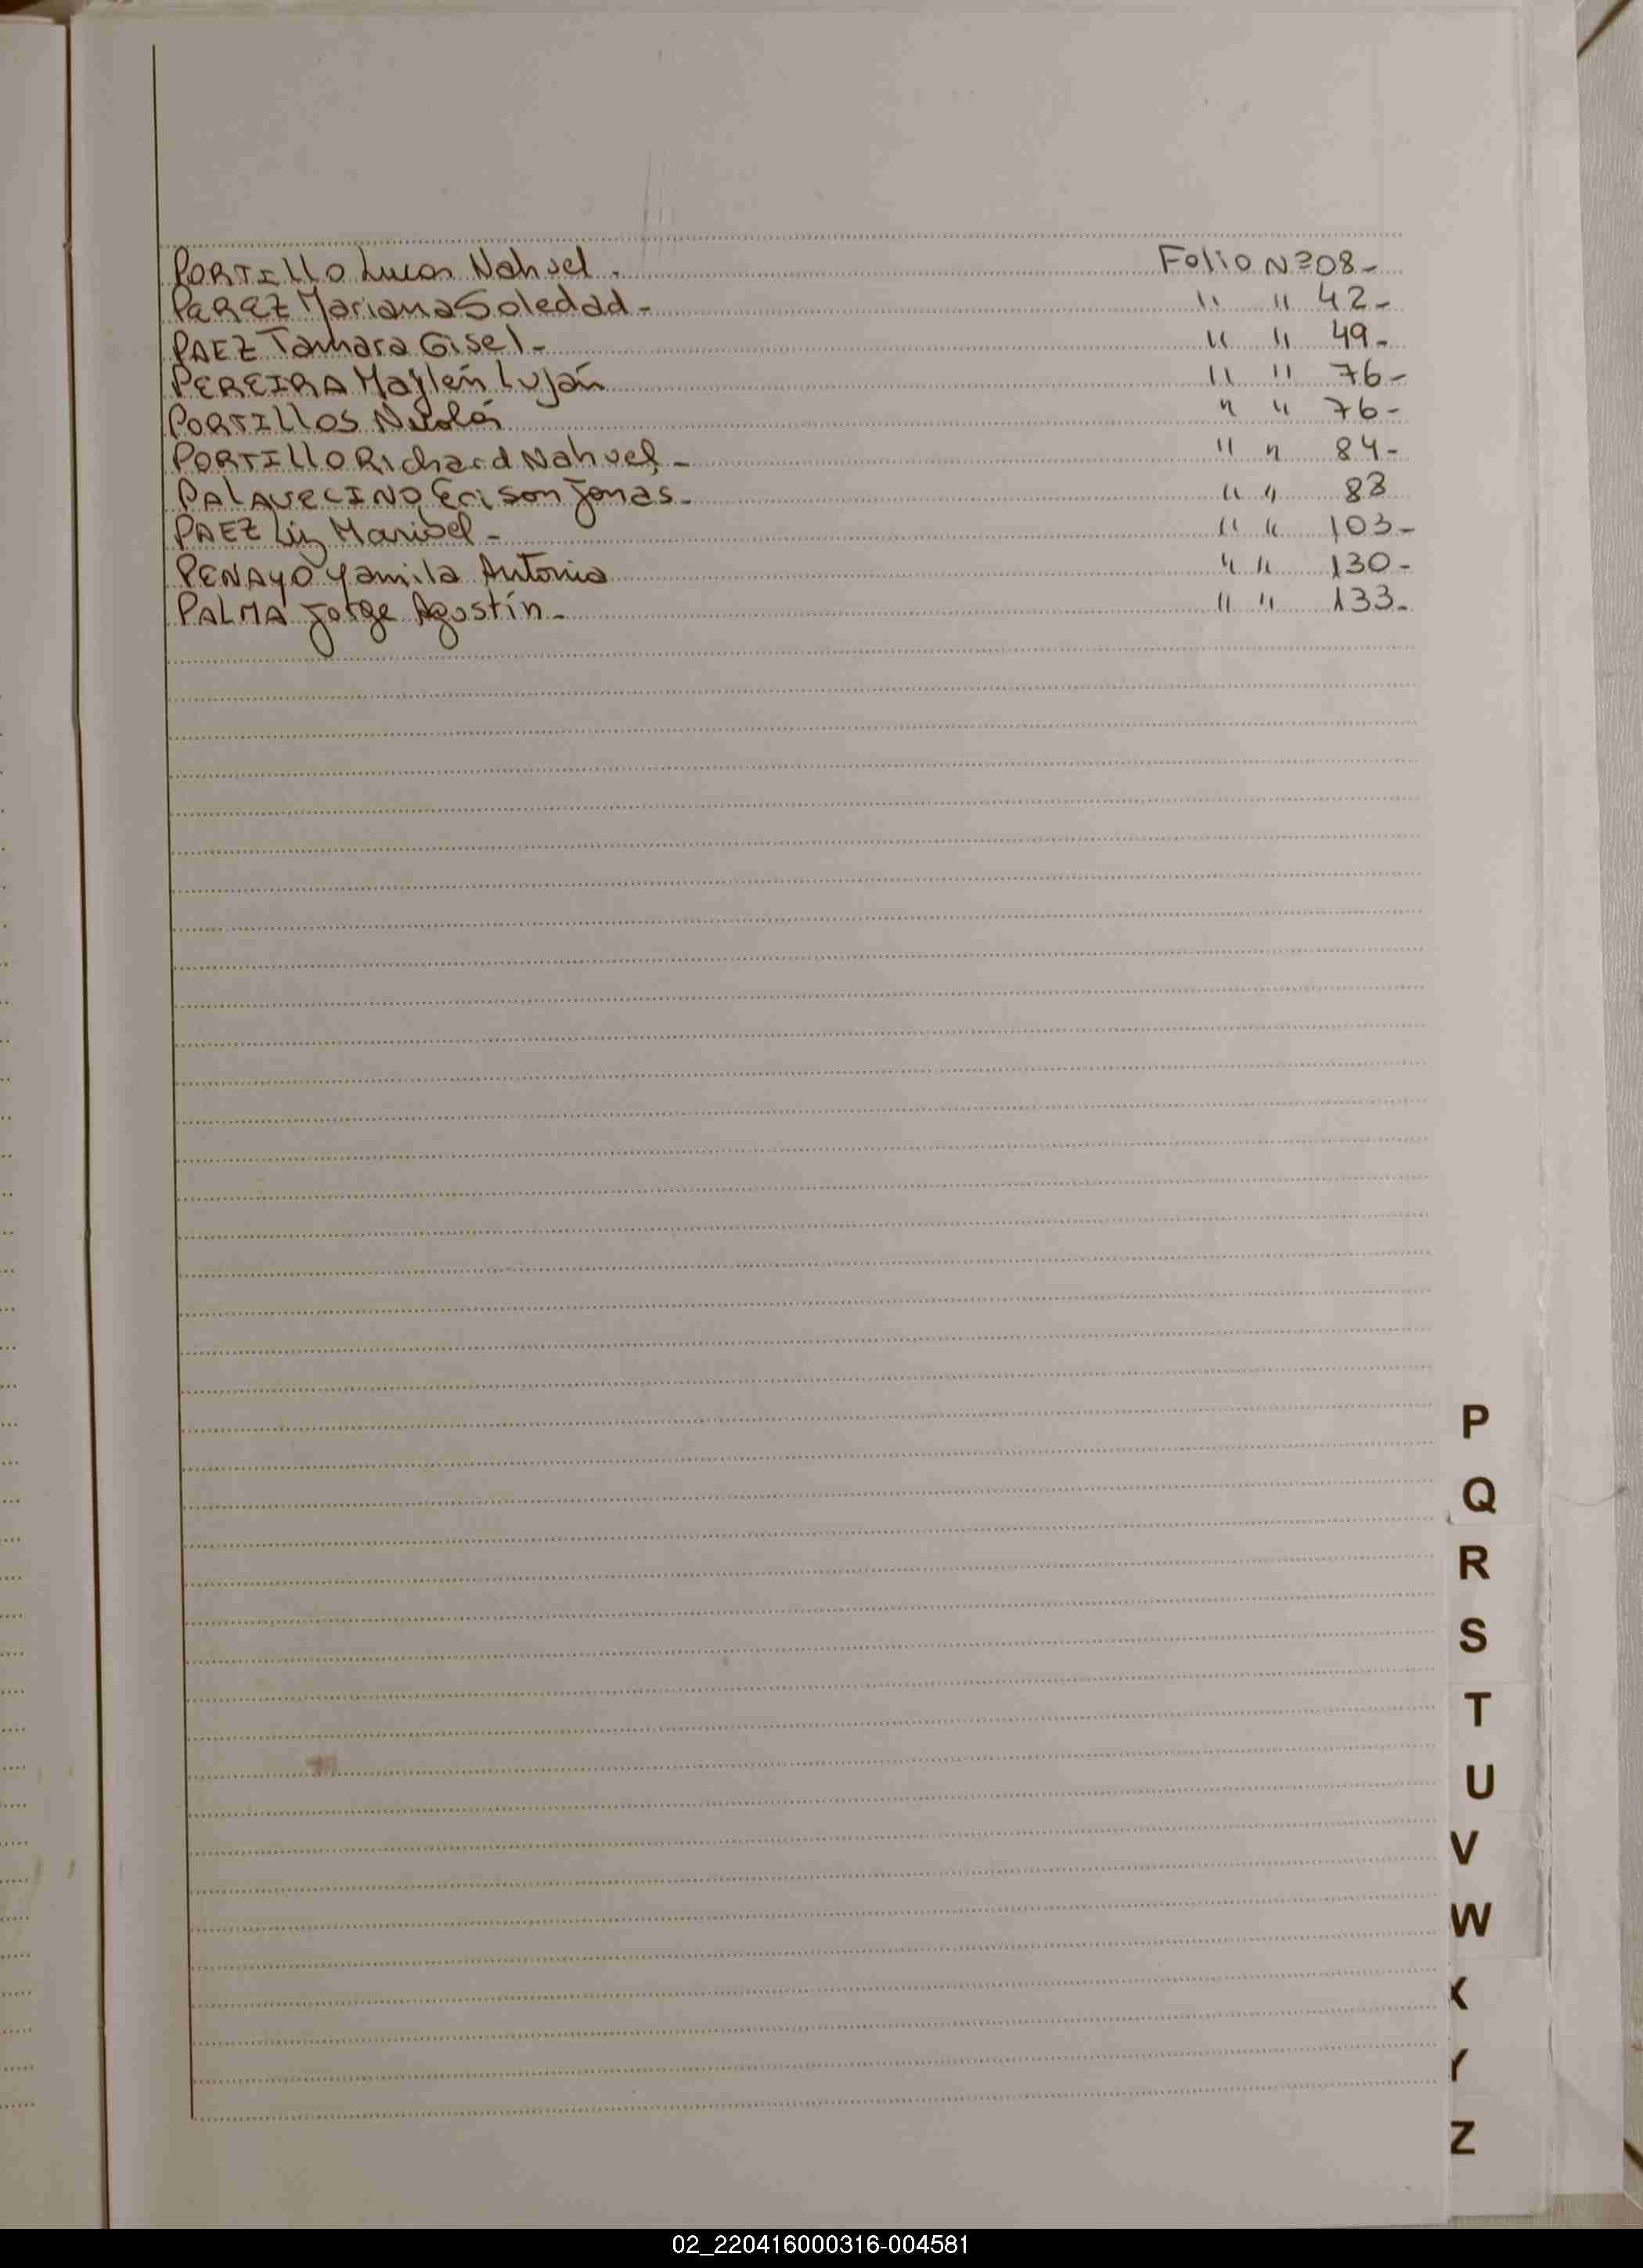 PORTILLO Lucas Nahuel. Folio Nº 08-
PEREZ Mariana Soledad- " " 42-
PAEZ Tamara Gisel- " " 49-
PEREIRA Maylén Luján " " 76-
PORTILLOS Nicolás " " 76-
PORTILLO Richard Nahuel- " " 84-
PALAVECINO, Erison Jonás- " " 88
PAEZ Liz Maribel- " " 103-
PENAYO Yamila Antonia " " 130-
PALMA Jorge Agustín- " " 133-
P
Q
R
S
T
U
V
W
X
Y
Z
02_220416000316-004581